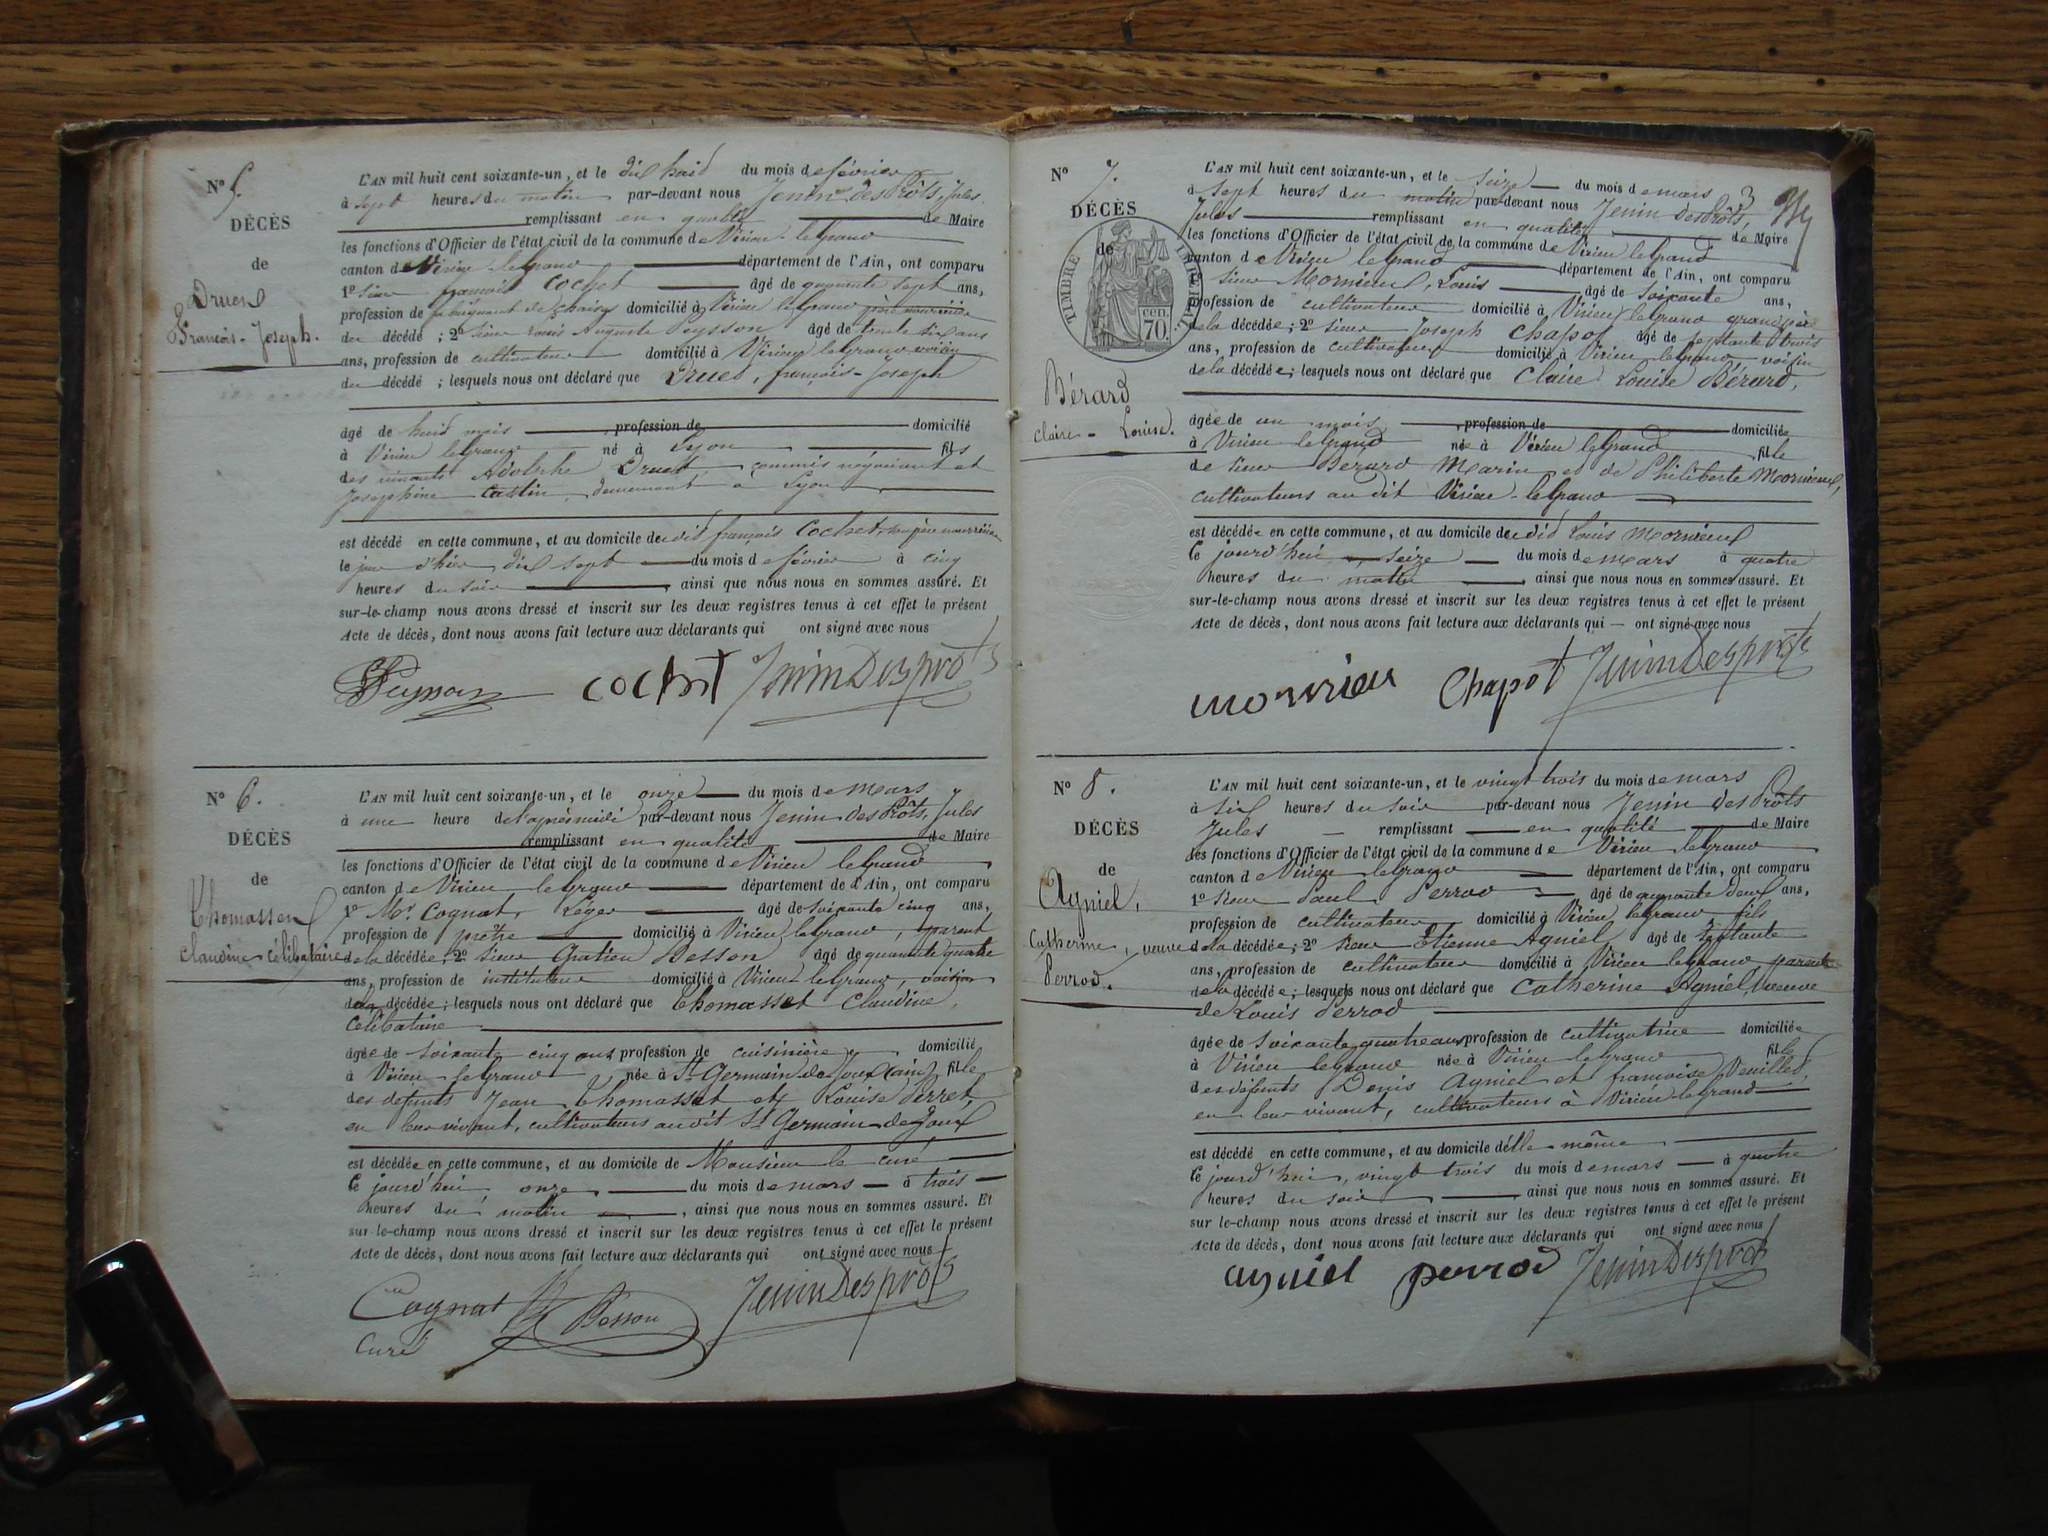 N° 5.
DÉCÈS
de
Druet
François-Joseph.
L'AN mil huit cent soixante-un, et le dix huit du mois de février
à sept heures du matin par-devant nous Jenin des Prôts, Jules
remplissant en qualité de Maire
les fonctions d'Officier de l'état civil de la commune de Virieu-le grand
canton de Virieu le grand département de l'Ain, ont comparu
1° sieur françois Cochet âgé de quarante sept ans,
profession de fabriquant de chaises domicilié à Virieu le grand père nourricier
du décédé ; 2° sieur Louis Auguste Peysson âgé de trente six ans
ans, profession de cultivateur domicilié à Virieu le grand voisin
du décédé ; lesquels nous ont déclaré que Druet, françois-Joseph
âgé de huit mois profession de domicilié
à Virieu le grand né à Lyon fils
des vivants Adolphe Druet, commis négociant et
Josephine Castin, demeurant à Lyon
est décédé en cette commune, et au domicile de dit françois Cochet, son père nourricier
le jour d'hier dix sept du mois de février à cinq
heures du soir ainsi que nous nous en sommes assuré. Et
sur-le-champ nous avons dressé et inscrit sur les deux registres tenus à cet effet le présent
Acte de décès, dont nous avons fait lecture aux déclarants qui ont signé avec nous
Peysson Cochet JeninDesprots
N° 6.
DÉCÈS
de
Thomasset
claudine célibataire
L'AN mil huit cent soixante-un, et le onze du mois de mars
à une heure de l'après midi par-devant nous Jenin des Prôts, Jules
remplissant en qualité de Maire
les fonctions d'Officier de l'état civil de la commune de Virieu le grand
canton de Virieu le grand département de l'Ain, ont comparu
1° Mr. Cognat, Léger âgé de soixante cinq ans,
profession de prêtre domicilié à Virieu le grand, parent
de la décédée ; 2° sieur Gratien Besson âgé de quarante quatre
ans, profession de instituteur domicilié à Virieu le grand, voisin
de la décédée ; lesquels nous ont déclaré que Thomasset Claudine,
célibataire
âgée de soixante cinq ans profession de cuisinière domicilié
à Virieu le grand née à St Germain de Joux (ain) fille
des défunts Jean Thomasset et Louise Perret,
en leur vivant, cultivateurs au dit St Germain de Joux
est décédée en cette commune, et au domicile de Monsieur le curé
Ce jourd'hui onze du mois de mars à trois
heures du matin, ainsi que nous nous en sommes assuré. Et
sur-le-champ nous avons dressé et inscrit sur les deux registres tenus à cet effet le présent
Acte de décès, dont nous avons fait lecture aux déclarants qui ont signé avec nous
Cognat Besson JeninDesprots
curé
N° 7.
DÉCÈS
de
TIMBRE IMPÉRIAL
70. cen.
Bérard
claire-Louise.
3
L'AN mil huit cent soixante-un, et le seize du mois de mars
à sept heures du matin par-devant nous Jenin des Prôts,
Jules remplissant en qualité de Maire
les fonctions d'Officier de l'état civil de la commune de Virieu le grand
canton de Virieu le grand département de l'Ain, ont comparu
1° sieur Mornieux, Louis âgé de soixante ans,
profession de cultivateur domicilié à Virieu le grand grand père
de la décédée ; 2° sieur Joseph Chapot âgé de septante trois
ans, profession de cultivateur domicilié à Virieu le grand voisin
de la décédée ; lesquels nous ont déclaré que Claire Louise Bérard,
âgée de un mois, profession de domiciliée
à Virieu le grand née à Virieu le Grand fille
de sieur Bérard Marin et de Philiberte Mornieux,
cultivateurs au dit Virieu-le grand
est décédée en cette commune, et au domicile de dit Louis Mornieux
Ce jourd'hui seize du mois de mars à quatre
heures du matin ainsi que nous nous en sommes assuré. Et
sur-le-champ nous avons dressé et inscrit sur les deux registres tenus à cet effet le présent
Acte de décès, dont nous avons fait lecture aux déclarants qui — ont signé avec nous
Chapot JeninDesprots
N° 8.
DÉCÈS
de
Agniel,
Catherine, veuve
Perrod.
L'AN mil huit cent soixante-un, et le vingt trois du mois de mars
à six heures du soir par-devant nous Jenin des Prôts
Jules remplissant en qualité de Maire
les fonctions d'Officier de l'état civil de la commune de Virieu le grand
canton de Virieu le grand département de l'Ain, ont comparu
1° sieur Paul Perrod âgé de quarante deux ans,
profession de cultivateur domicilié à Virieu le grand fils
de la décédée ; 2° sieur Etienne Agniel âgé de septante
ans, profession de cultivateur domicilié à Virieu le grand parent
de la décédée ; lesquels nous ont déclaré que Catherine Agniel, veuve
de Louis Perrod
âgée de soixante quatre ans profession de cultivatrice domiciliée
à Virieu le grand née à Virieu le grand fille
des défunts Denis Agniel et francoise Veuillet,
en leur vivant, cultivateurs à Virieu-le-grand
est décédé en cette commune, et au domicile d'elle même
Ce jourd'hui, vingt trois du mois de mars à quatre
heures du soir ainsi que nous nous en sommes assuré. Et
sur le-champ nous avons dressé et inscrit sur les deux registres tenus à cet effet le présent
Acte de décès, dont nous avons fait lecture aux déclarants qui ont signé avec nous
agniel perrod JeninDesprots